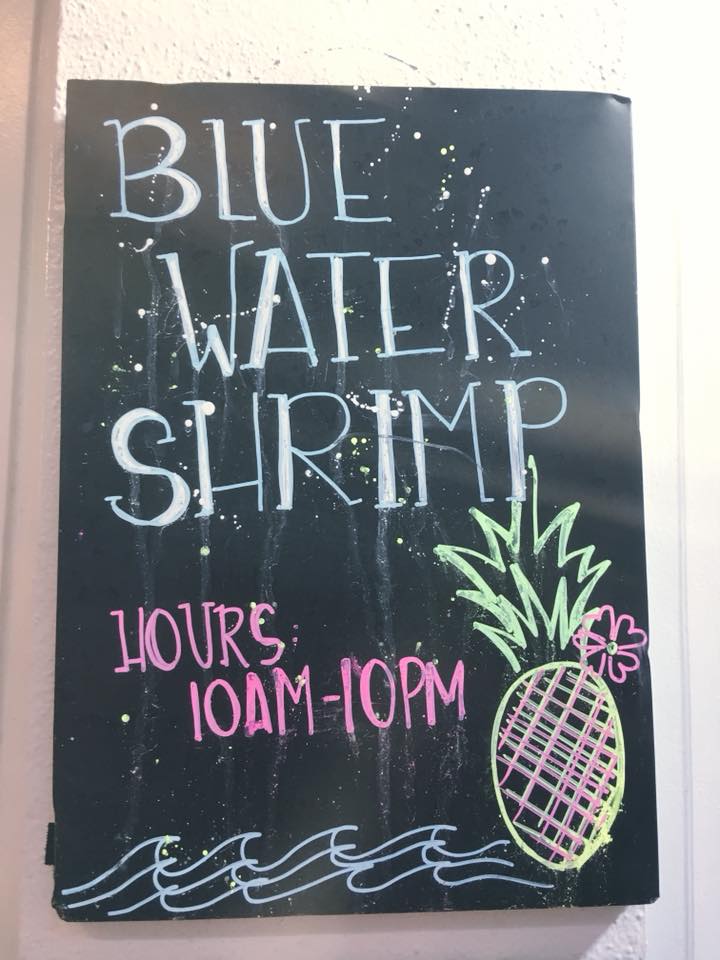 BLUE
WATER
SHRIMP
HOURS:
10AM-10PM